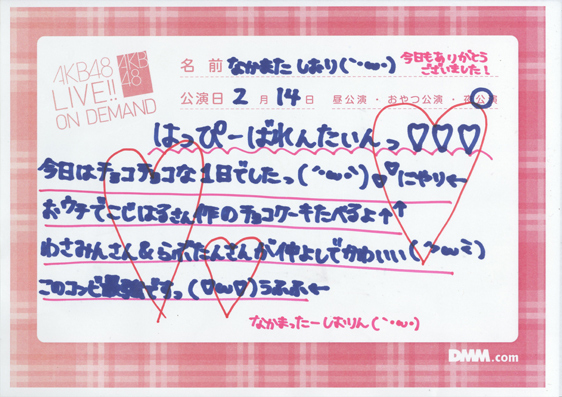 AKB48
LIVE!!
ON DEMAND
AKB
48
名前 なかまた しおり(｀・ω・)
今日もありがとう
ございました！
公演日 2月14日 昼公演・おやつ公演・夜公演
はっぴーばれんたいんっ♡♡♡
今日はチョコチョコな1日でしたっ(｀・ω・´)♡♡にやり←
おウチでこじはるさん作のチョコケーキたべるよ↑↑
わさみんさん&らぶたんさんが仲よしでかわいい(　ω　)
このコンビ最強ですっ(♡ω♡)うふふ←
なかまったーしおりん(｀・ω・)
DMM.com